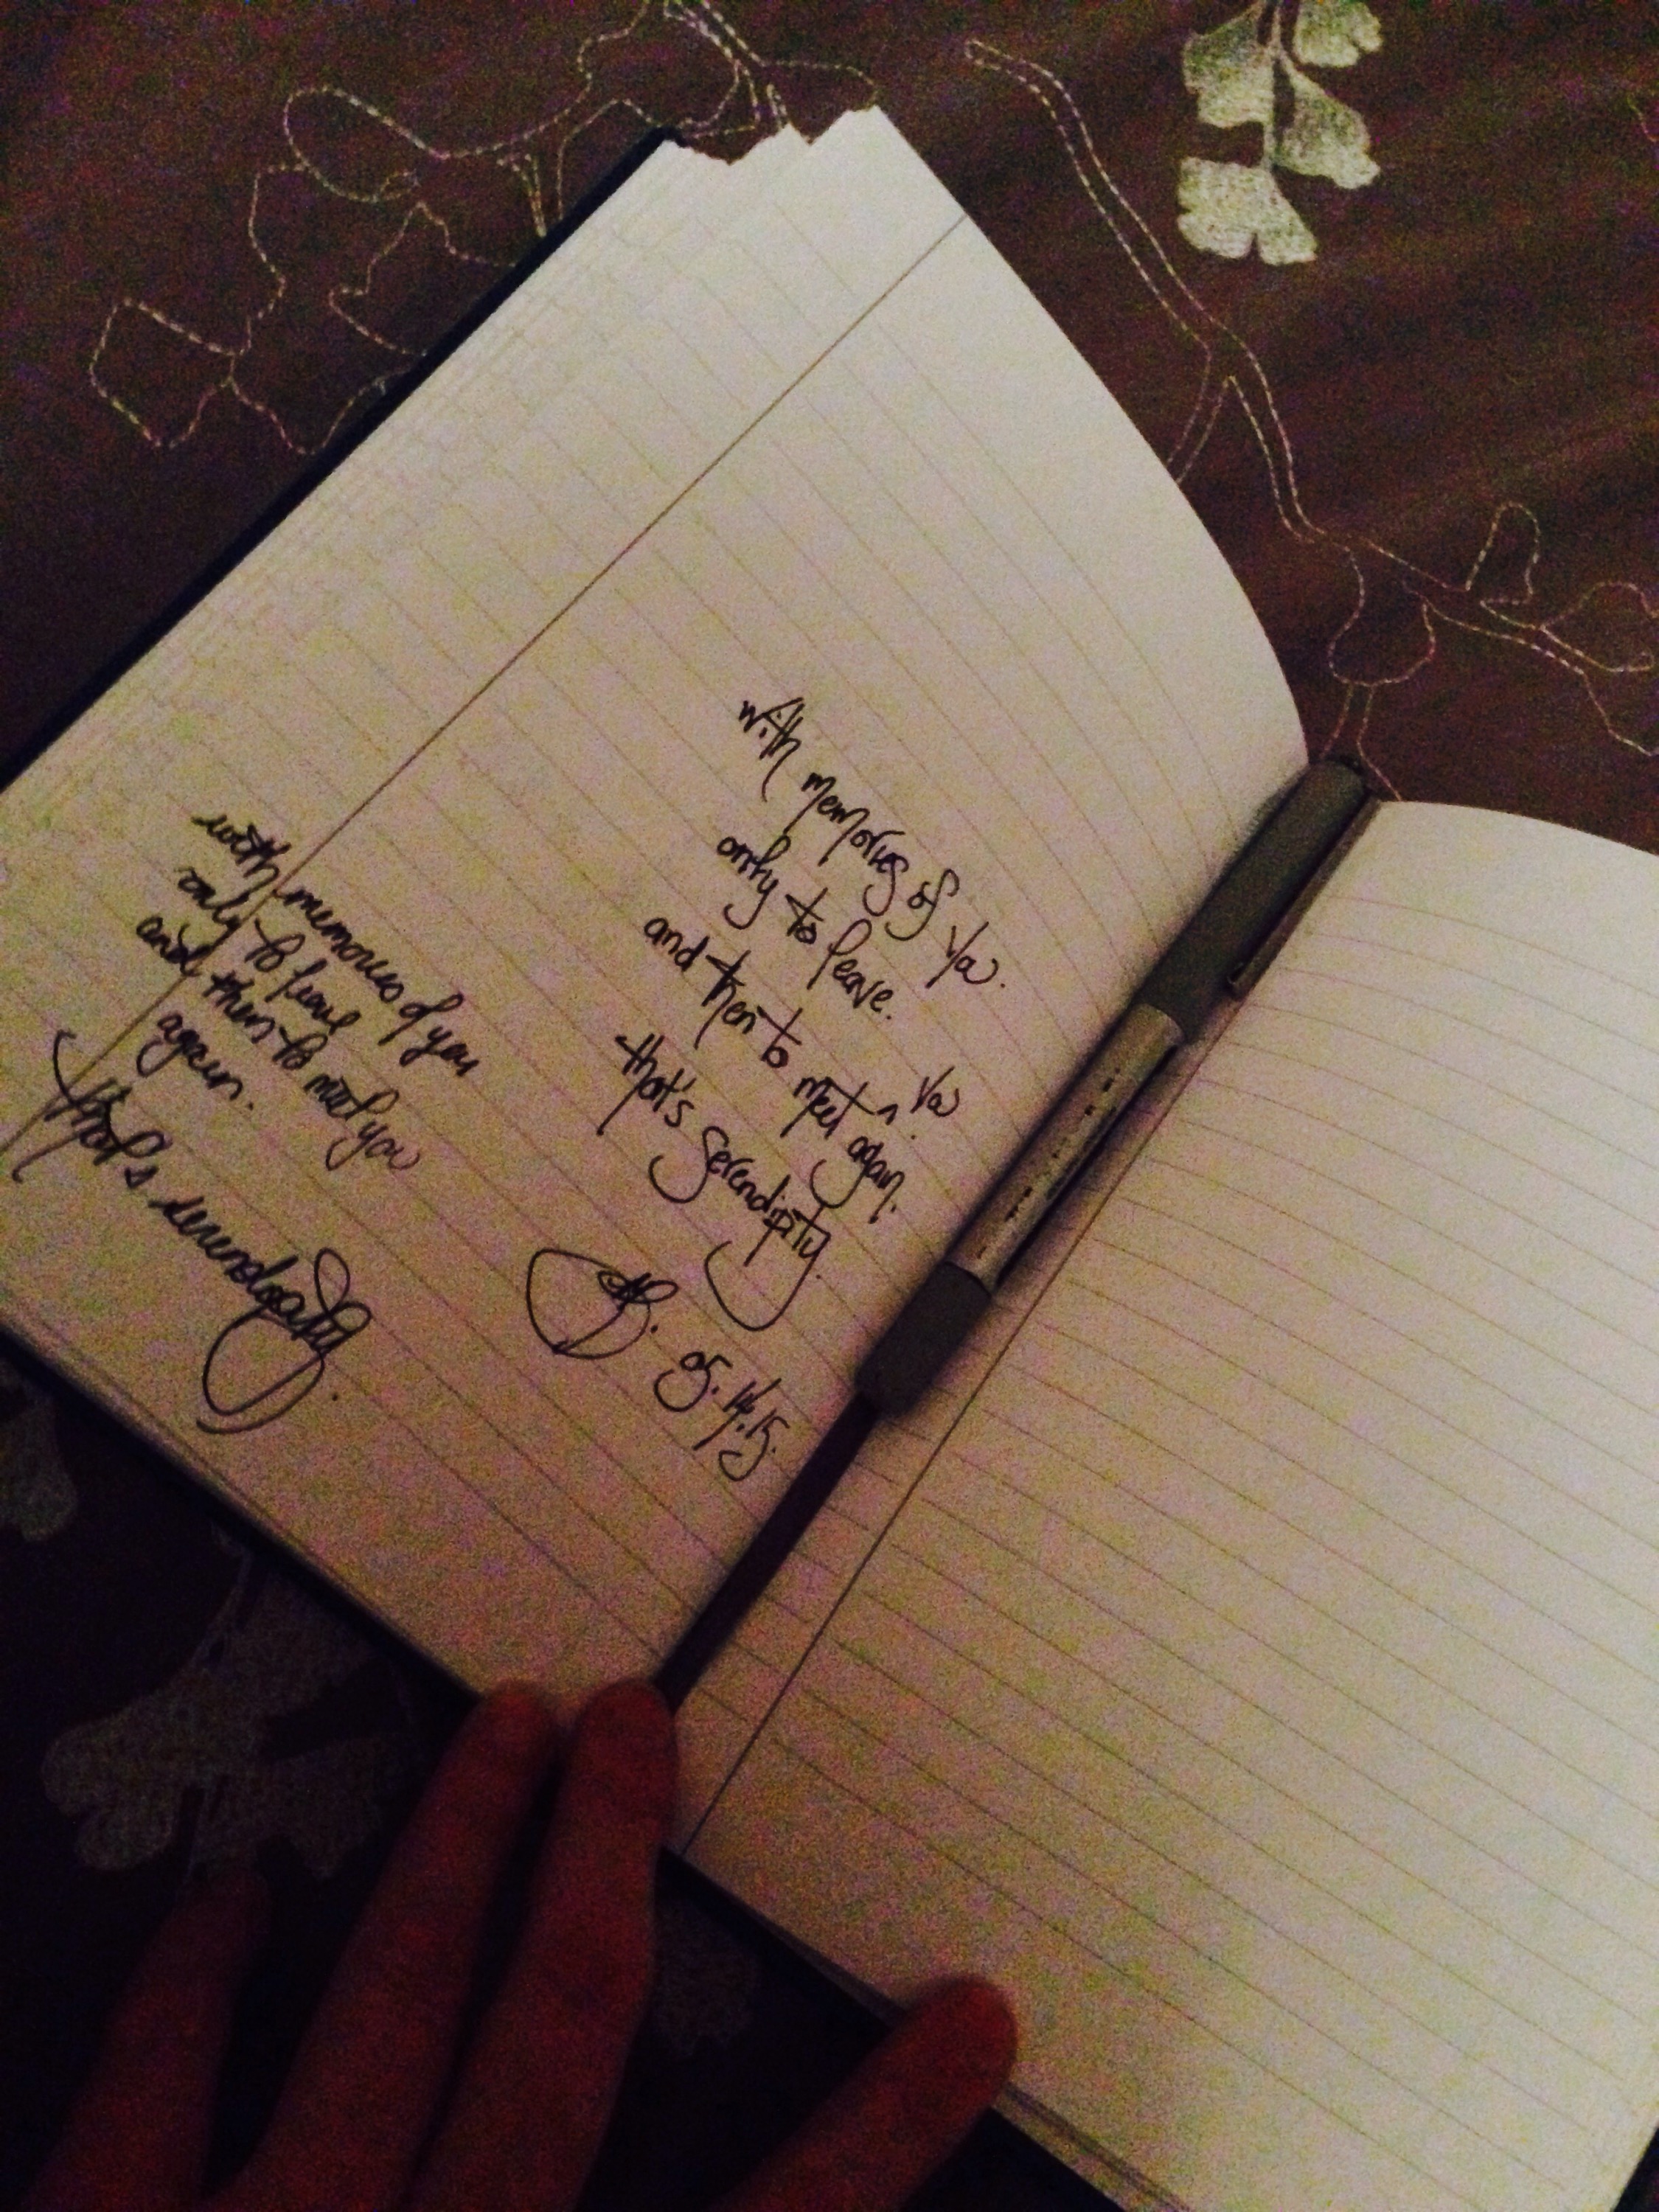 with memories of Ya.
only to leave.
and then to meet ^ Ya again.
that's Serendipity.
05.14.15.
with memories of you
only to leave
and then to meet you
again.
that's serendipity.